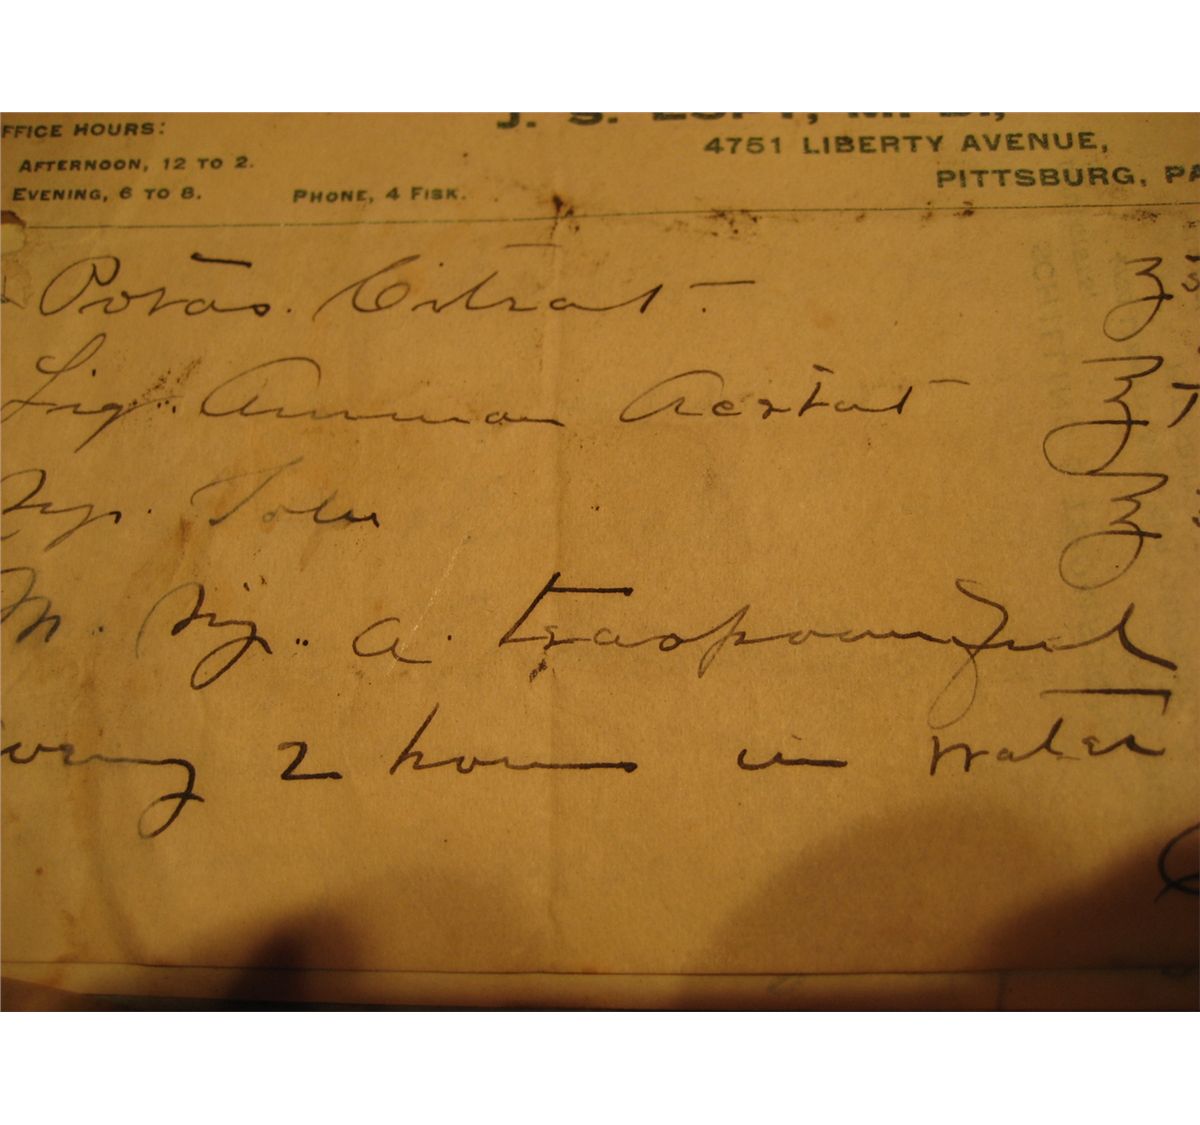 FFICE HOURS:
AFTERNOON, 12 TO 2.
EVENING, 6 TO 8.
PHONE, 4 FISK.
J. S.
4751 LIBERTY AVENUE,
PITTSBURG, PA
Potas. Citrat
Liq. Ammon Acetat
Syr. Tolu
M. Sig. a teaspoonful
every 2 hours in water